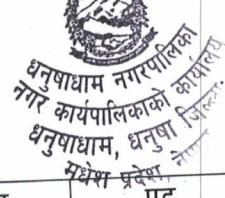 धनुषाधाम नगरपालिका
नगर कार्यपालिकाको कार्यालय
धनुषाधाम, धनुषा जिल्ला
मधेश प्रदेश, नेपाल
पद